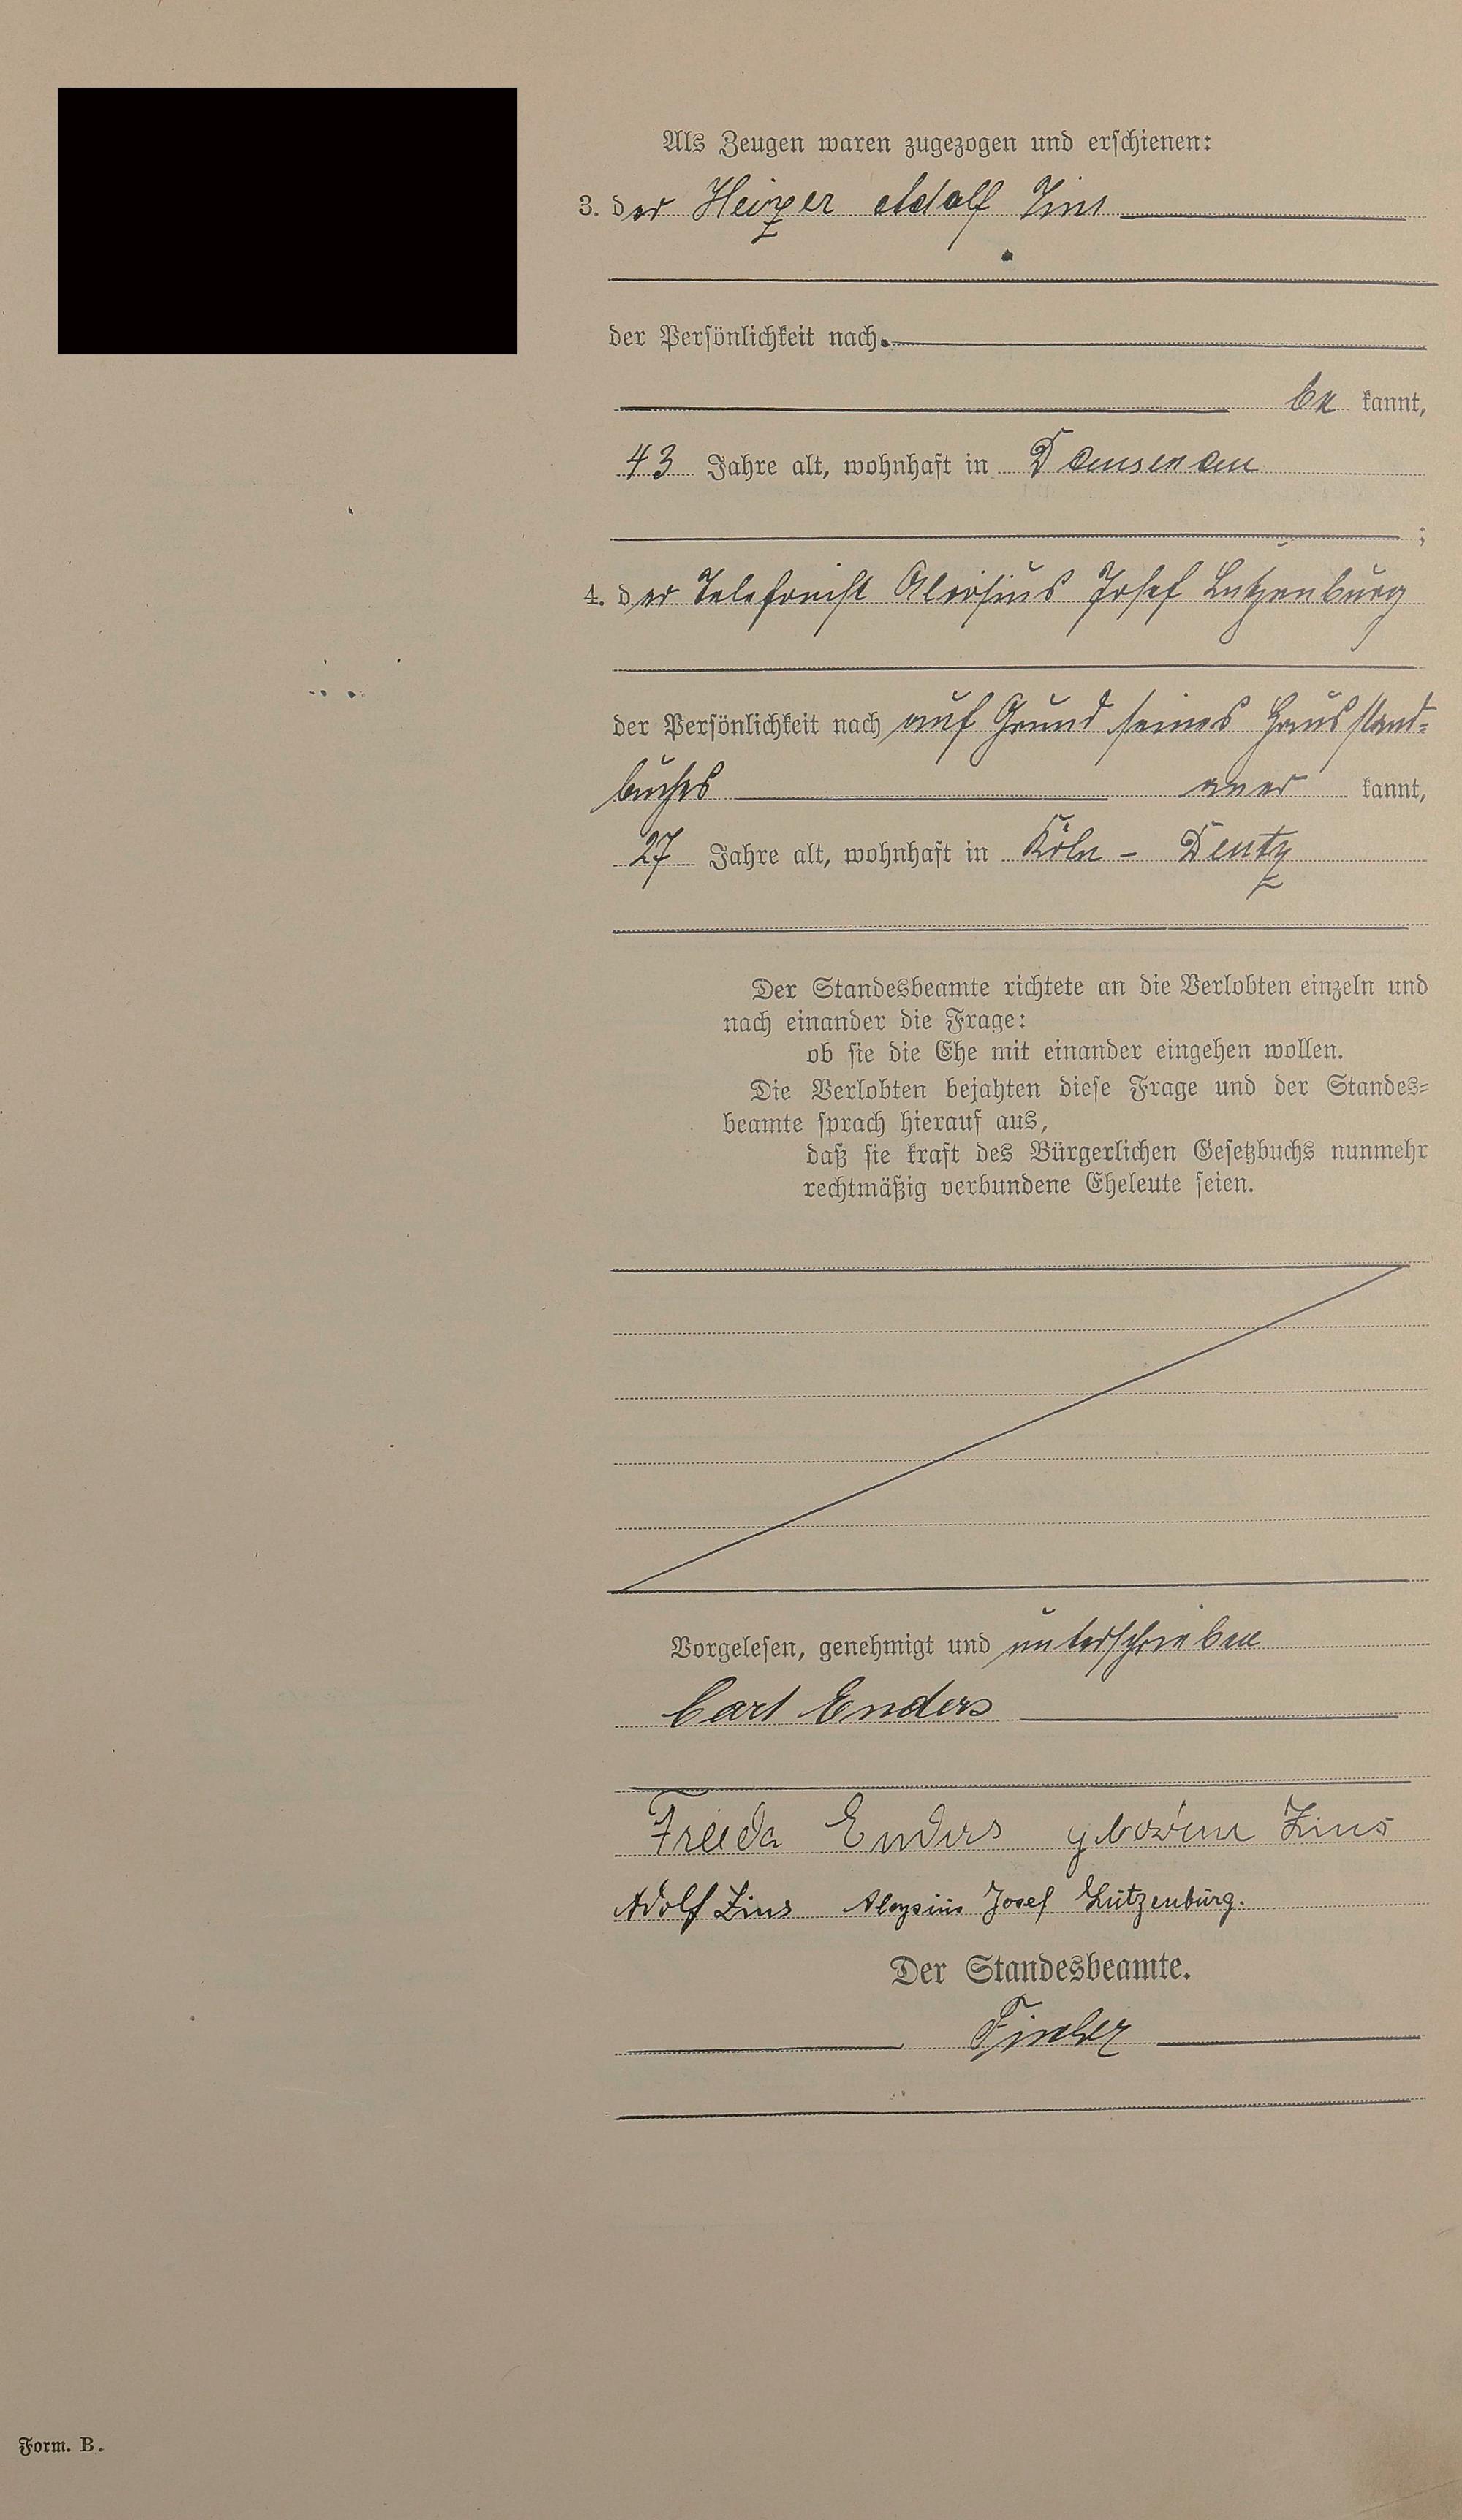 Als Zeugen waren zugezogen und erschienen:
3. der Heizer Adolf Zins
der Persönlichkeit nach
be kannt,
43 Jahre alt, wohnhaft in Dausenau
;
4. der Telefonist Aloisius Josef Lutzenburg
der Persönlichkeit nach auf Grund seines Hausstand-
buches aner kannt,
27 Jahre alt, wohnhaft in Köln - Deutz
Der Standesbeamte richtete an die Verlobten einzeln und
nach einander die Frage:
ob sie die Ehe mit einander eingehen wollen.
Die Verlobten bejahten diese Frage und der Standes-
beamte sprach hierauf aus,
daß sie kraft des Bürgerlichen Gesetzbuchs nunmehr
rechtmäßig verbundene Eheleute seien.
Vorgelesen, genehmigt und unterschrieben
Carl Enders
Frieda Enders geborene Zins
Adolf Zins Aloysius Josef Lützenburg.
Der Standesbeamte.
Form. B.